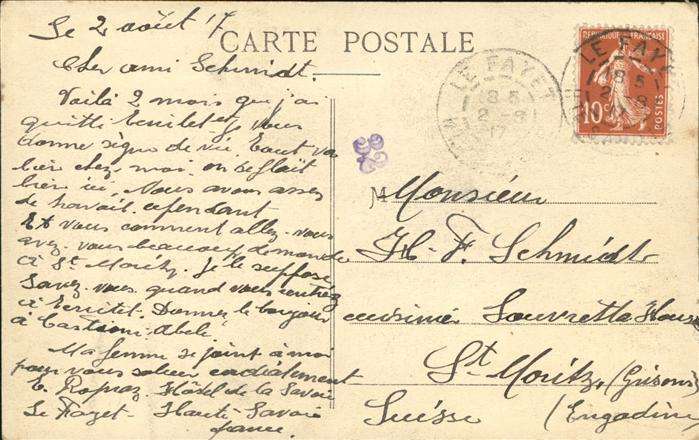 CARTE POSTALE
Le 2 août 17
Cher ami Schmidt.
Voilà 2 mois que j'ai
quitté Territet et vous
donne signe de vie. Tout va
bien chez moi. on se plaît
bien ici. Nous avons assez
de travail. cependant
Et vous comment allez-vous
avez-vous beaucoup de monde
à St. Moritz. Je le suppose
Savez-vous quand vous rentrez
à Territet. Donnez le bonjour
à
Ma femme se joint à moi
pour vous saluer cordialement
E. Hôtel de la Savoie
Le Fayet - Haute-Savoie
france.
REPUBLIQUE FRANÇAISE
10c
POSTES
LE FAYET
8 5
2 - 8
17
LE FAYET
8 5
2 - 8
M Monsieur
H. F. Schmidt
cuisinier Souvretta House
St Moritz, (Grisons)
Suisse (Engadine)